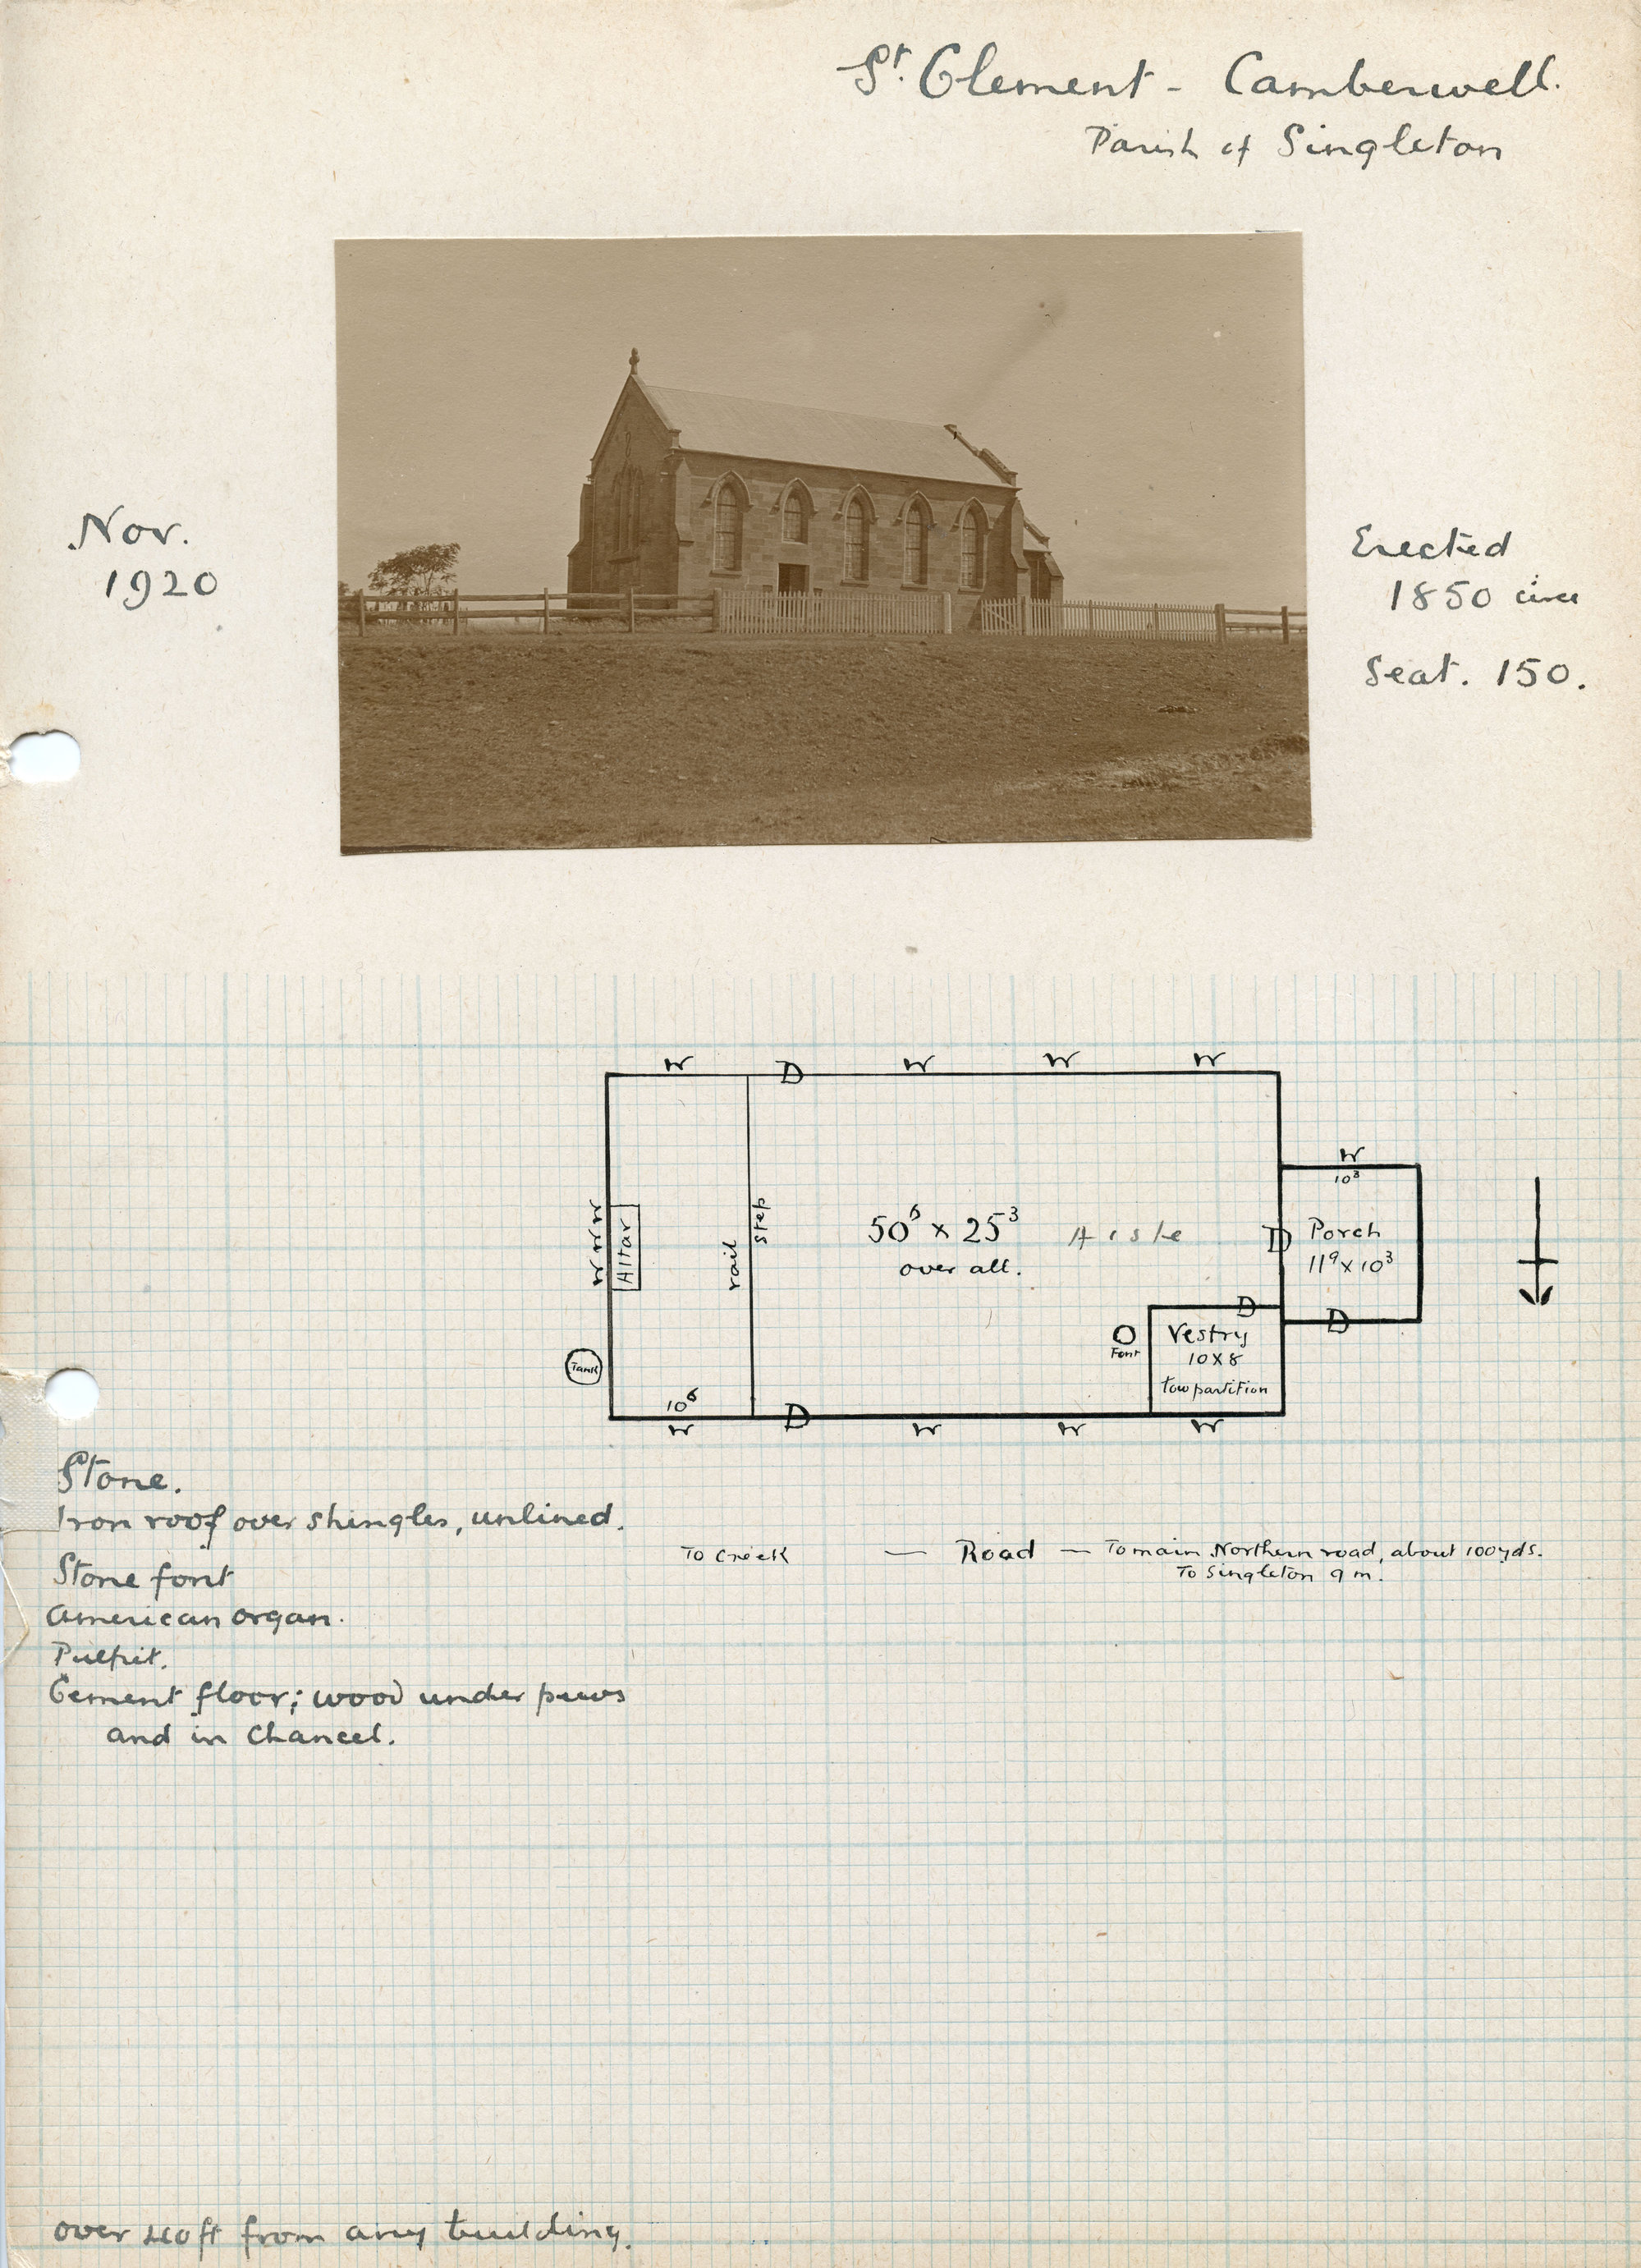 St. Clement - Camberwell.
Parish of Singleton
Nov.
1920
Erected
1850 circa
Seat. 150.
W D W W W
W
10³
W W W
Altar
rail
step
50⁶ x 25³
over all.
Aisle
D
Porch
11⁹ x 10³
D
D
Font
Vestry
10 X 8
low partition
Tank
10⁶
W D W W W
Stone.
Iron roof over shingles, unlined.
To Creek — Road — To main Northern road, about 100 yds.
To Singleton 9 m.
Stone font
American organ.
Pulpit.
Cement floor; wood under pews
and in Chancel.
over 40 ft from any building.